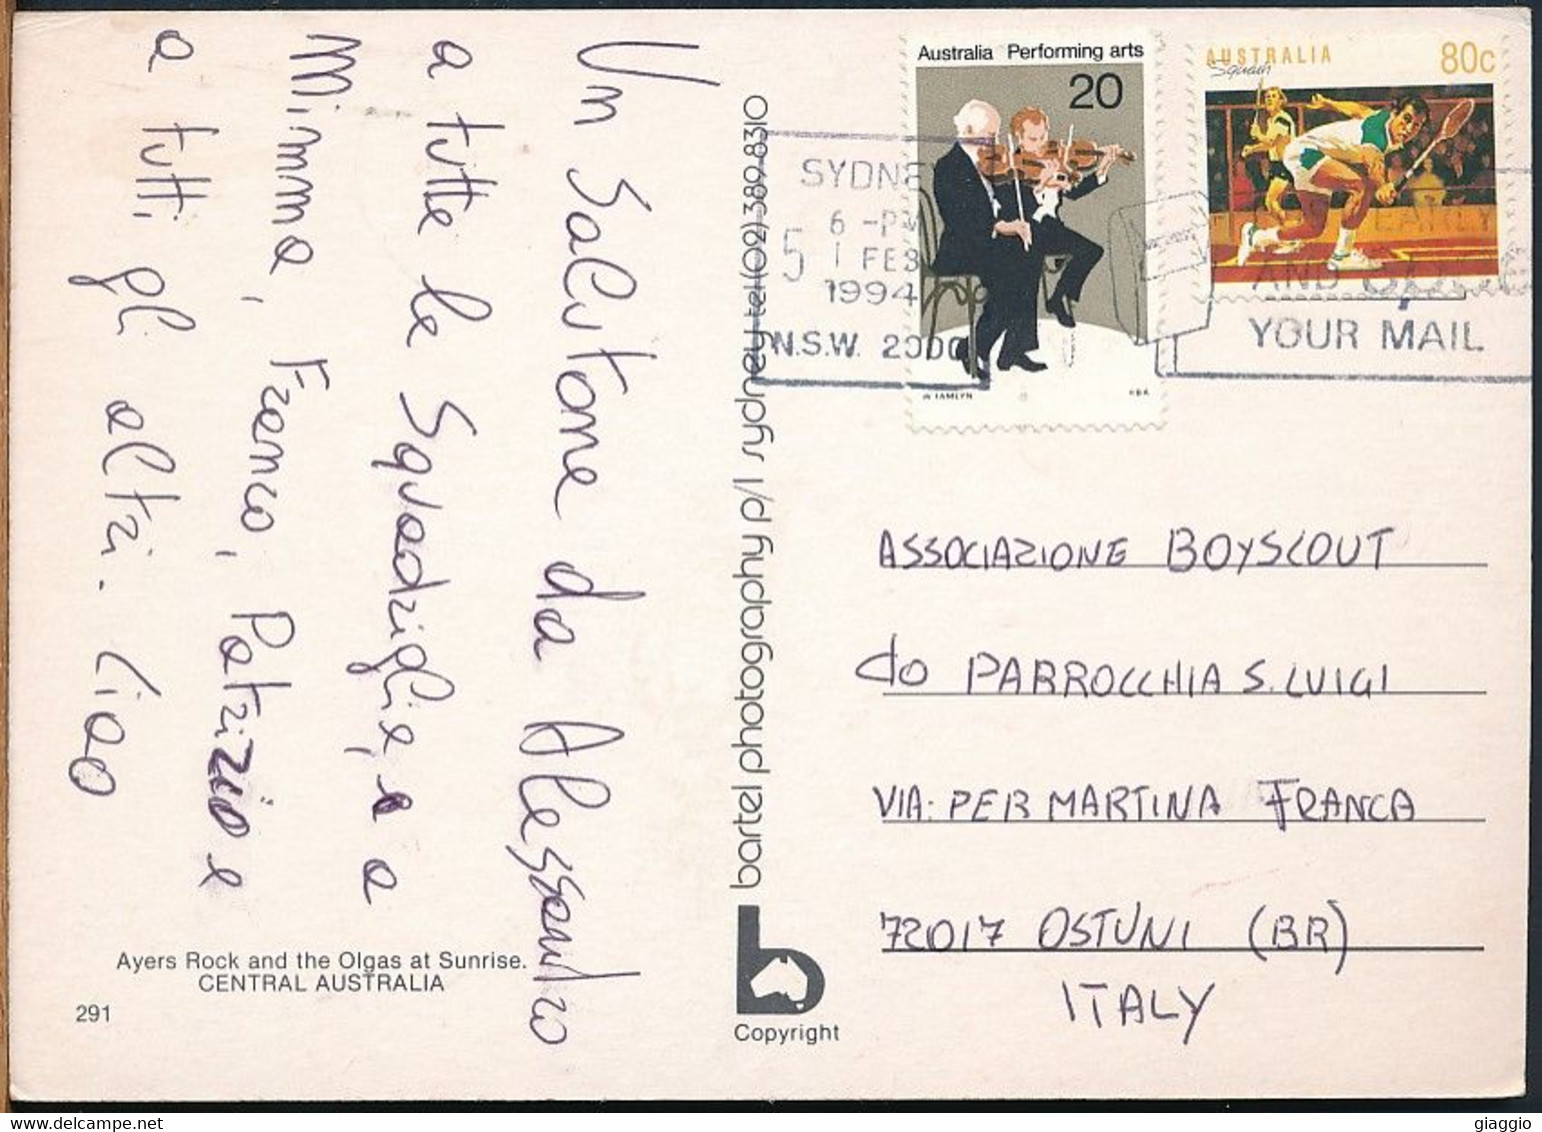 Un Salutone da Alessandro
a tutte le Squadriglie, e a
Mimma, Franco, Patrizio e
a tutti gli altri. Ciao
Ayers Rock and the Olgas at Sunrise.
CENTRAL AUSTRALIA
291
bartel photography p/l sydney tel (02) 389-8310
b
Copyright
Australia Performing arts
20
W TAMLYN
RBA
AUSTRALIA 80c
Squash
SYDNEY
6 -PM
5 1 FEB
1994
N.S.W. 2000
EARLY
AND
YOUR MAIL
ASSOCIAZIONE BOYSCOUT
c/o PARROCCHIA S. LUIGI
VIA: PER MARTINA FRANCA
72017 OSTUNI (BR)
ITALY
giaggio